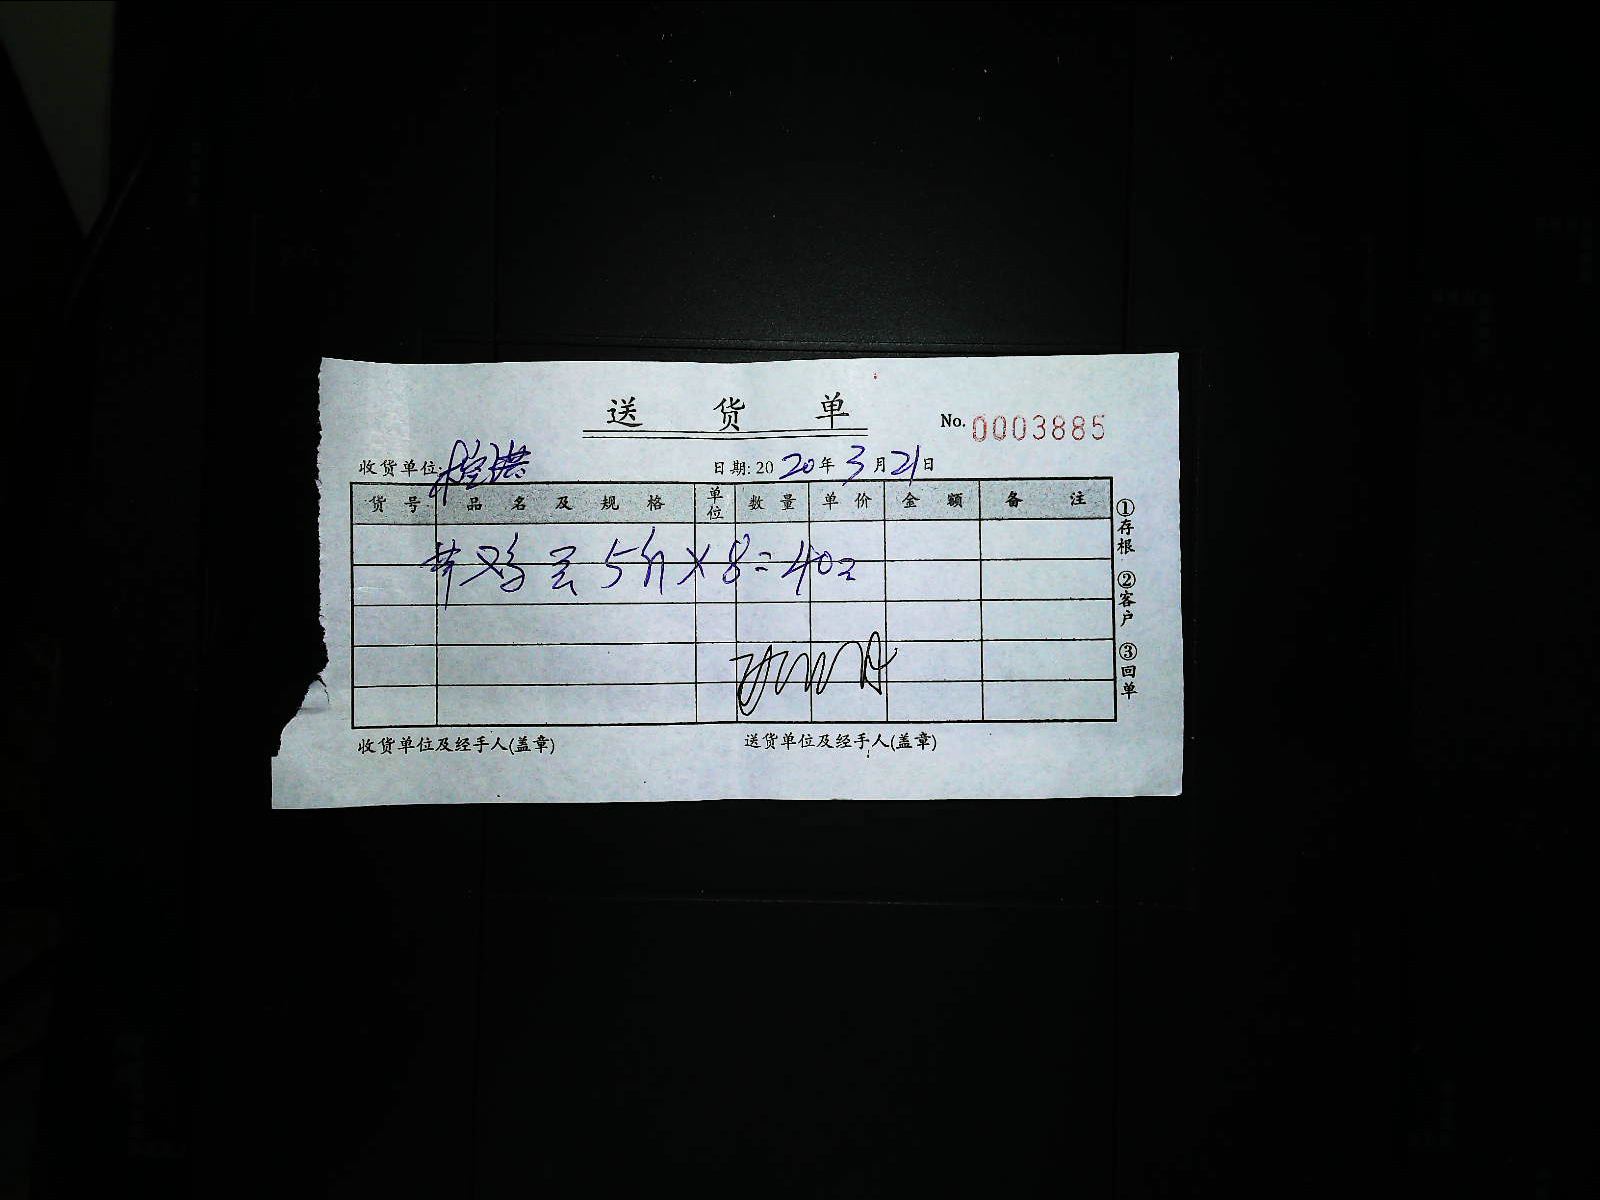 送货单
No. 0003885
收货单位:
日期: 2020年3月21日
货号 品名及规格 单位 数量 单价 金额 备注
草鸡蛋 5斤×8=40元
①存根 ②客户 ③回单
收货单位及经手人(盖章) 送货单位及经手人(盖章)